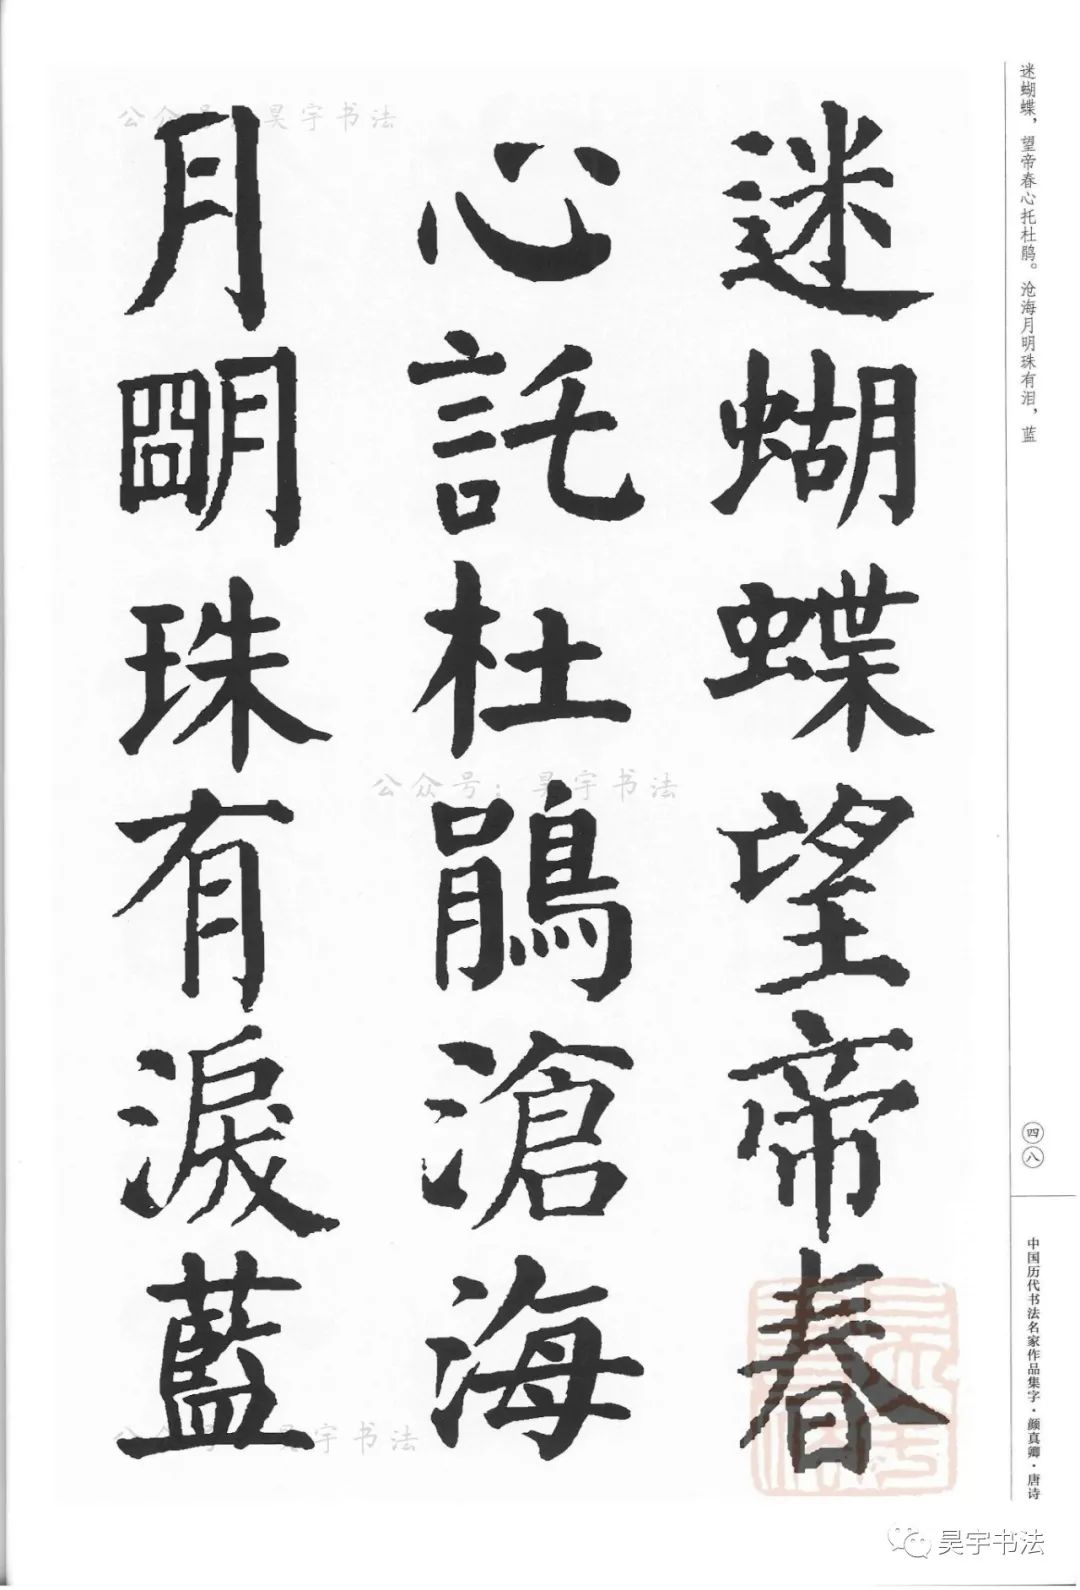 迷蝴蝶，望帝春心托杜鹃。沧海月明珠有泪，蓝
迷蝴蝶望帝春
心託杜鵑滄海
月朙珠有淚藍
四八
中国历代书法名家作品集字·颜真卿·唐诗
公众号：昊宇书法
公众号：昊宇书法
公众号：昊宇书法
昊宇书法